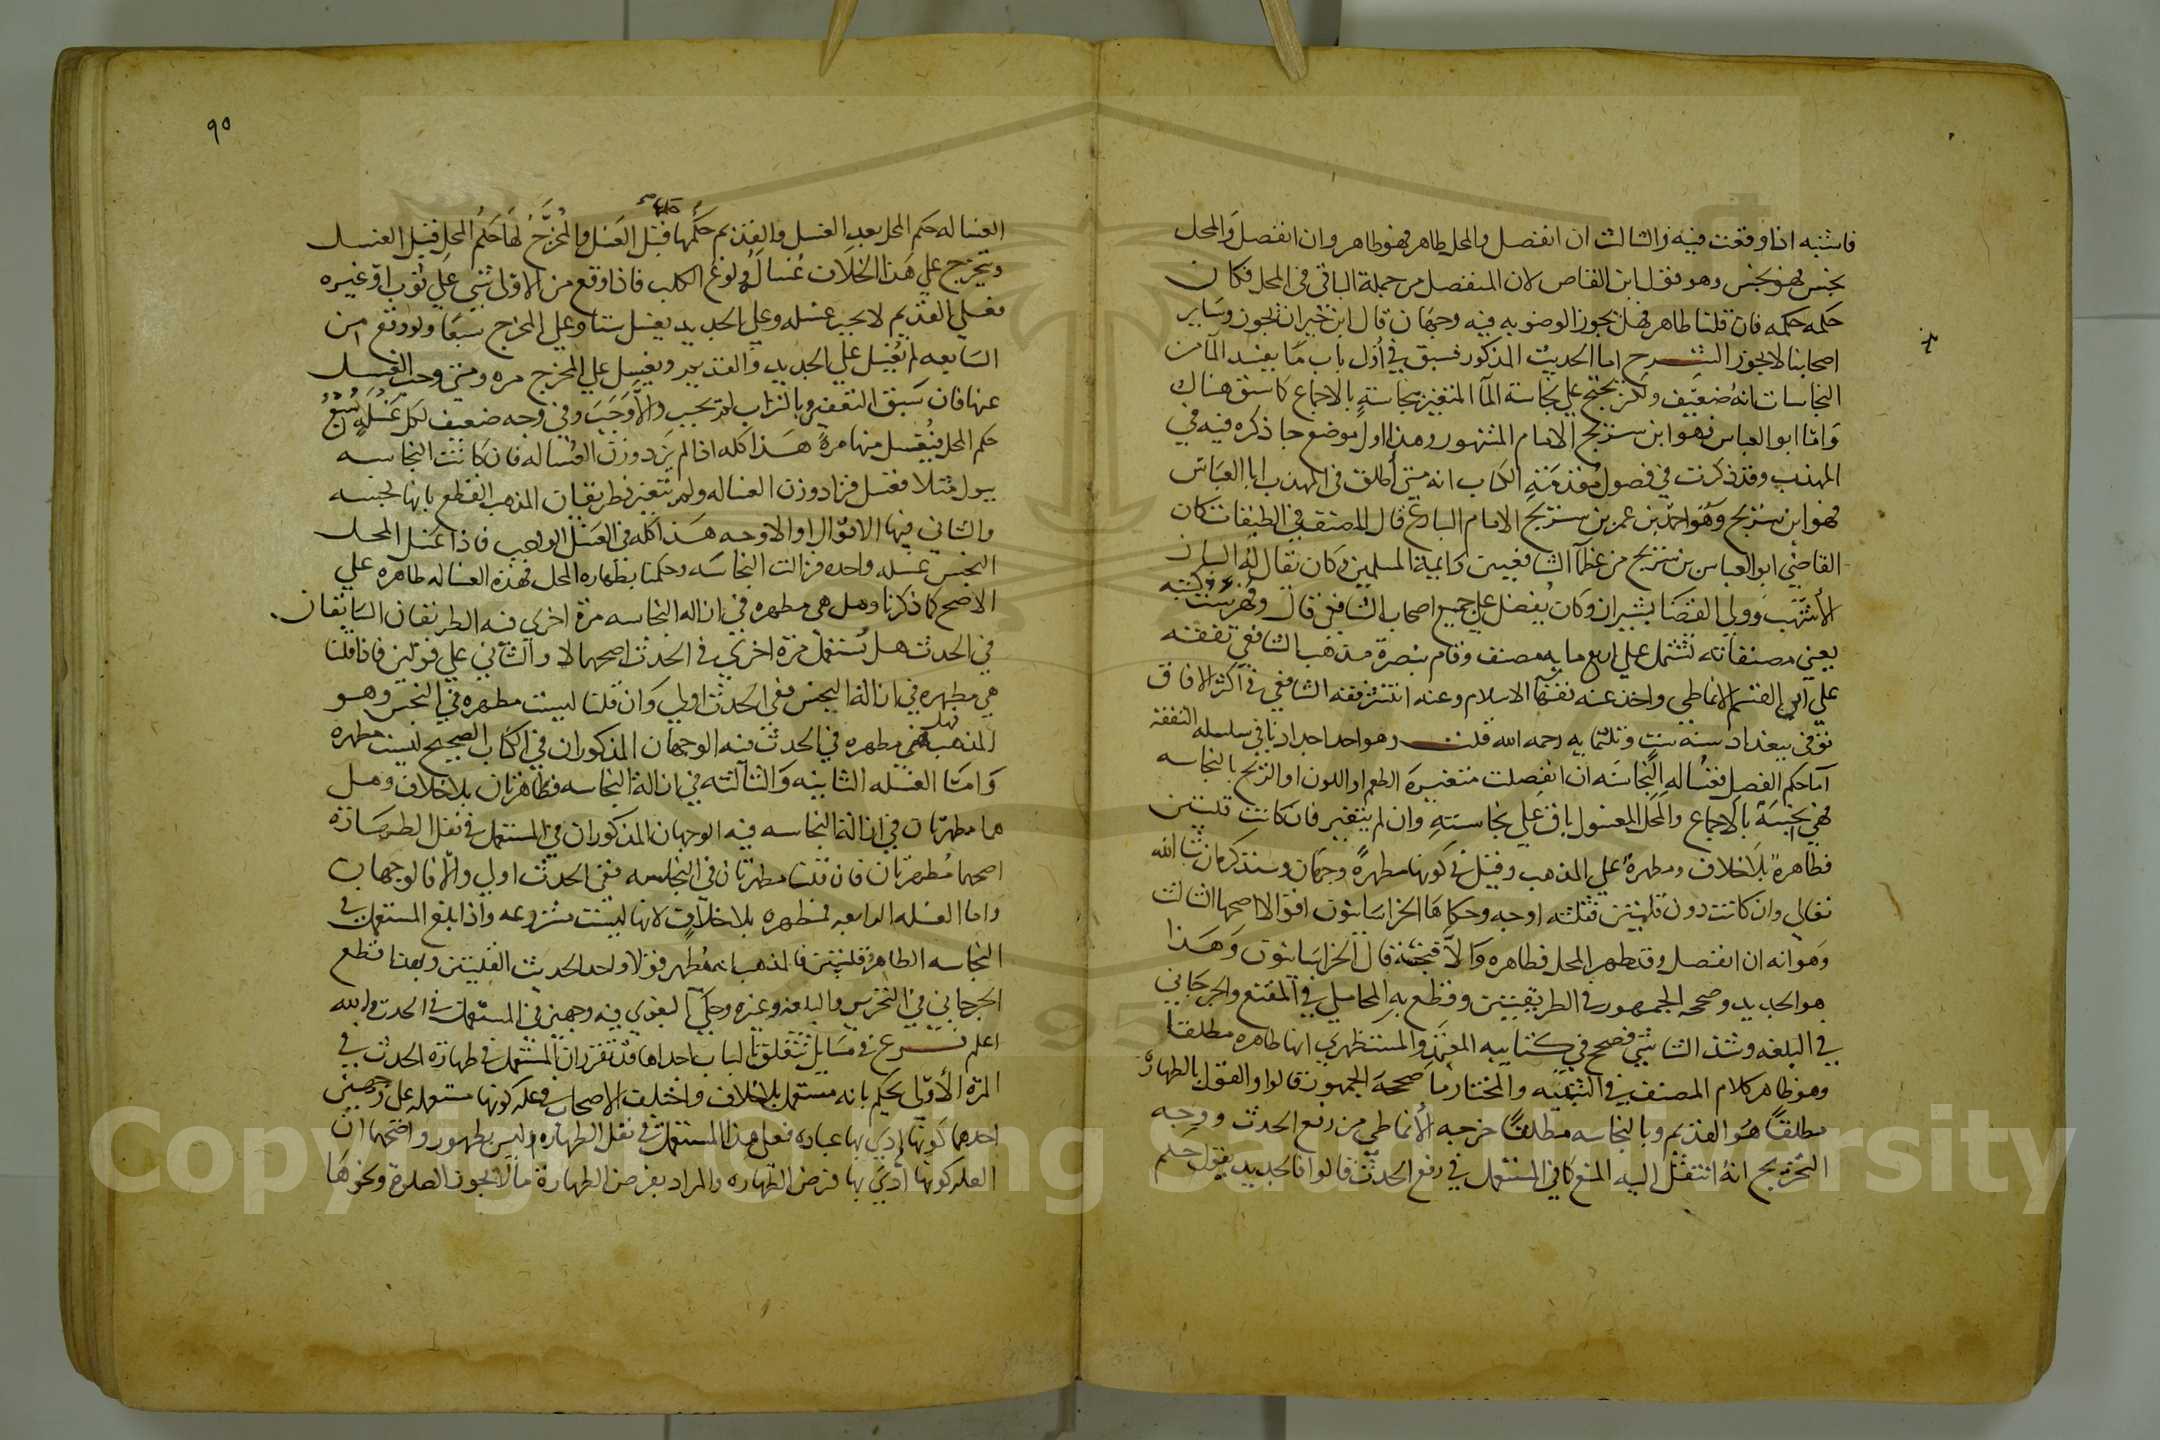 فاشبه اذا وقعت فيه والثالث ان انفصل والمحل طاهر فهو طاهر وان انفصل والمحل
نجس فهو نجس وهو قول ابن القاص لان المنفصل من جملة الباقي في المحل فكان
حكمه حكمه فان قلنا طاهر فهل يجوز الوضو به فيه وجهان قال ابن خيران يجوز وساير
اصحابنا لا يجوز الشرح اما الحديث المذكور فسبق في اول باب ما يفسد الما من
النجاسات انه ضعيف ولكن يحتج علي نجاسة الما المتغير بنجاسة بالاجماع كما سبق هناك
واما ابو العباس فهو ابن سريج الامام المشهور وهذا اول موضع جا ذكره فيه في
المهذب وقد ذكرت في فصول مقدمة الكتاب انه متي اطلق في المهذب ابا العباس
فهو ابن سريج وهو احمد بن عمر بن سريج الامام البارع قال المصنف في الطبقات كان
القاضي ابو العباس بن سريج من عظما الشافعيين وايمة المسلمين وكان يقال له الباز
الاشهب وولي القضا بشيراز وكان يفضل علي جميع اصحاب الشافعي قال وفهرست كتبه
يعني مصنفاته تشتمل علي اربع مايه مصنف وقام بنصرة مذهب الشافعي تفقه
علي ابي القسم الانماطي واخذ عنه فقها الاسلام وعنه انتشر فقه الشافعي في اكثر الافاق
توفي ببغداد سنة ست وثلثمايه رحمه الله قلت وهو احد اجدادنا في سلسله التفقه
اما حكم الفصل فغساله النجاسه ان انفصلت متغيرة الطعم او اللون او الريح بالنجاسه
فهي نجسة بالاجماع والمحل المغسول باق علي نجاسته وان لم يتغير فان كانت قلتين
فطاهرة بلا خلاف ومطهرة علي المذهب وقيل في كونها مطهرة وجهان وسنذكره ان شا الله
تعالي وان كانت دون قلتين فثلثه اوجه وحكاها الخراسانيون اقوالا اصحها الثالث
وهو انه ان انفصل وقد طهر المحل فطاهره والا فنجسة قال الخراسانيون وهذا
هو الجديد وصححه الجمهور في الطريقتين وقطع به المحاملي في المقنع والجرجاني
في البلغه وشذ الشاشي فصحح في كتابيه المعتمد والمستظهري انها طاهره مطلقا
وهو ظاهر كلام المصنف في التنبيه والمختار ما صححه الجمهور قالوا والقول بالطهارة
مطلقا هو القديم وبالنجاسه مطلقا خرجه الانماطي من رفع الحدث ووجه
التخريج انه انتقل اليه المنع كما في المستعمل في رفع الحدث قالوا فالجديد يقول حكم
٩٥
الغساله حكم المحل بعد الغسل والقديم حكمها قبل الغسل والمخرج لها حكم المحل قبل الغسل
ويتخرج علي هذا الخلاف غساله ولوغ الكلب فاذا وقع من الاولي شي علي ثوب او غيره
فعلي القديم لا يجب غسله وعلي الجديد يغسل ستا وعلي المخرج سبعا ولو وقع من
السابعه لم يغسل علي الجديد والقديم ويغسل علي المخرج مره ومتي وجب الغسل
عنها فان سبق التعفير بالتراب لم يجب والا وجب وفي وجه ضعيف لكل غسلة سبع
حكم المحل فيغسل منها مرة هذا كله اذا لم يزد وزن الغساله فان كانت النجاسه
بول مثلا فغسل فزاد وزن الغساله ولم تتغير فطريقان المذهب القطع بانها نجسه
والثاني فيها الاقوال او الاوجه هذا كله في الغسل الواجب فاذا غسل المحل
النجس غسله واحده فزالت النجاسه وحكمنا بطهارة المحل فهذه الغساله طاهره علي
الاصح كما ذكرنا وهل هي مطهره في ازاله النجاسه مرة اخري فيه الطريقان السابقان
في الحدث هل يستعمل مرة اخري في الحدث اصحهما لا والثاني علي قولين فاذا قلنا
هي مطهره في ازالة النجس ففي الحدث اولي وان قلنا ليست مطهره في النجس وهو
المذهب فهل هي مطهره في الحدث فيه الوجهان المذكوران في الكتاب الصحيح ليست مطهره
واما الغسله الثانيه والثالثه في ازالة النجاسه فطاهرتان بلا خلاف وهل
هما مطهرتان في ازالة النجاسه فيه الوجهان المذكوران في المستعمل في نفل الطهارة
اصحهما مطهرتان فان قلنا مطهرتان في النجاسه ففي الحدث اولي والا فالوجهان
واما الغسله الرابعه فمطهره بلا خلاف لانها ليست مشروعه واذا بلغ المستعمل في
النجاسه الطاهر قلتين فالمذهب انه مطهر قولا واحدا لحديث القلتين وبهذا قطع
الجرجاني في التحرير والبلغه وغيره وحكي البغوي فيه وجهين في المستعمل في الحدث والله
اعلم فرع في مسايل تتعلق بالباب احداها قد تقرر ان المستعمل في طهارة الحدث في
المرة الاولي يحكم بانه مستعمل بلا خلاف واختلف الاصحاب في علة كونها مستعمله علي وجهين
احدهما كونها ادي بها عباده فعلي هذا المستعمل في نفل الطهاره ليس بطهور واصحهما ان
العله كونها ادي بها فرض الطهاره والمراد بفرض الطهارة ما لا تجوز الصلاة ونحوها
Copyright © King Saud University